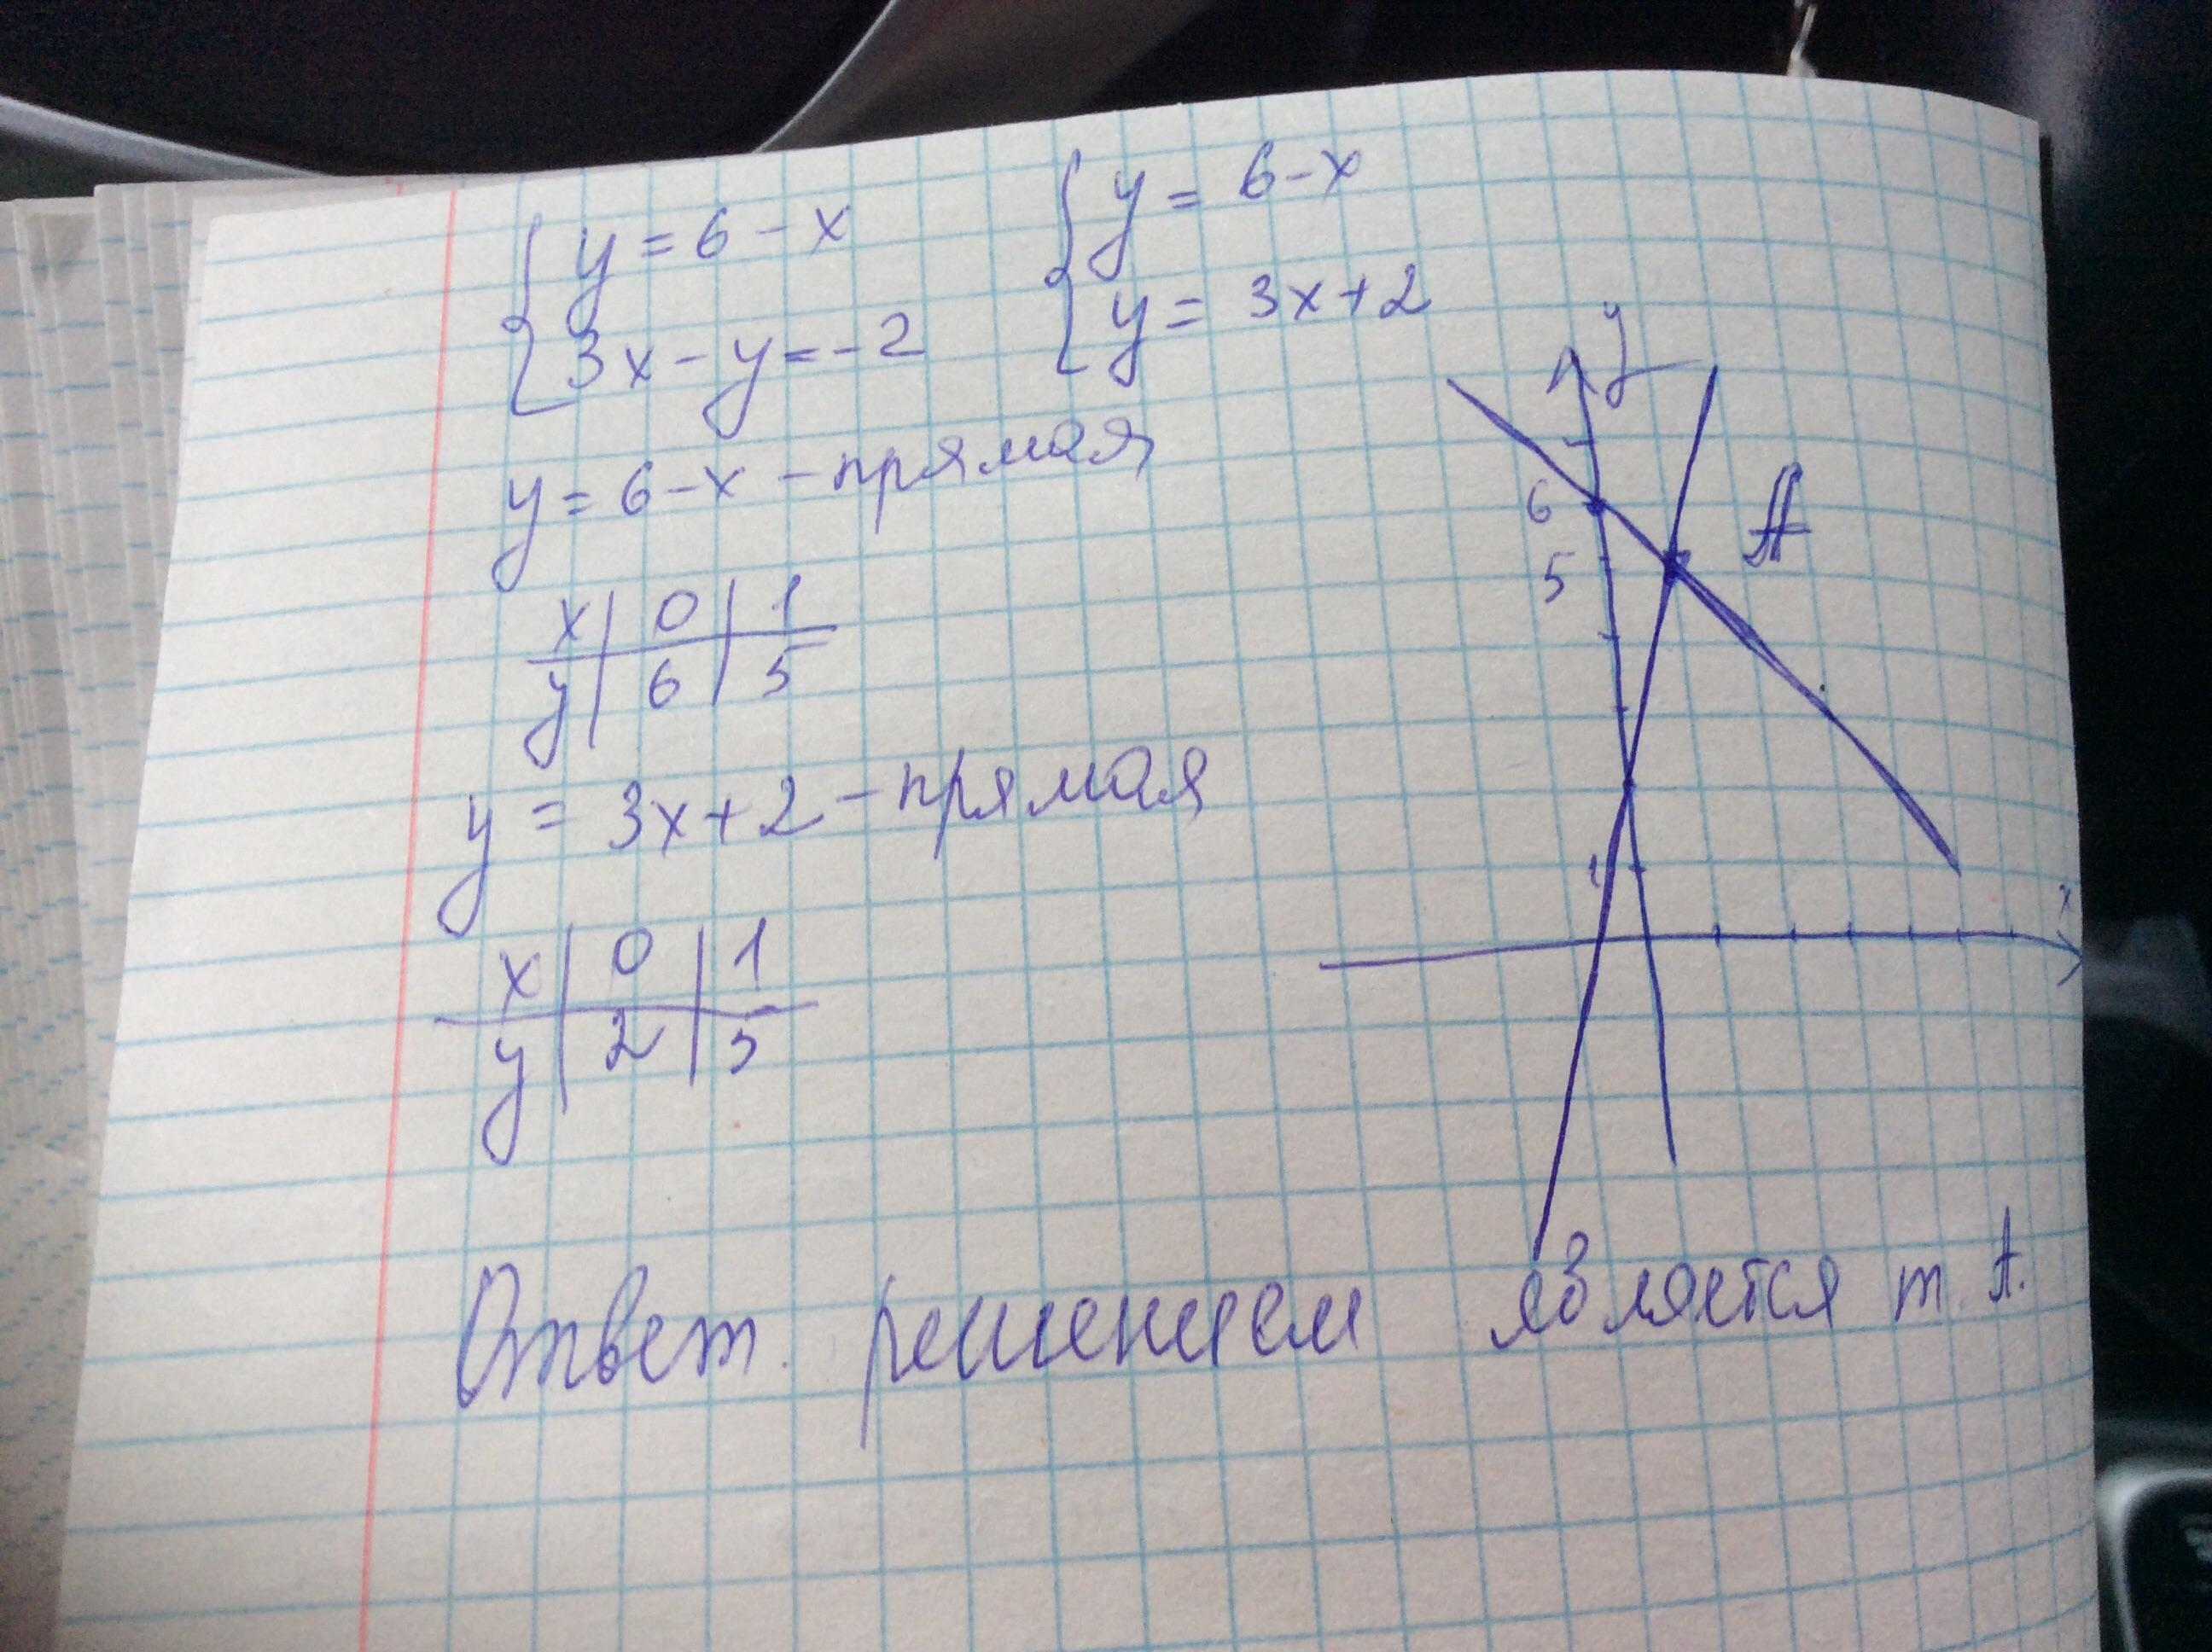 y = 6 - x
3x - y = -2
y = 6 - x
y = 3x + 2
y = 6 - x - прямая
x | 0 | 1
y | 6 | 5
y = 3x + 2 - прямая
x | 0 | 1
y | 2 | 5
y
6
5
A
1
x
Ответ. решением является т. А.